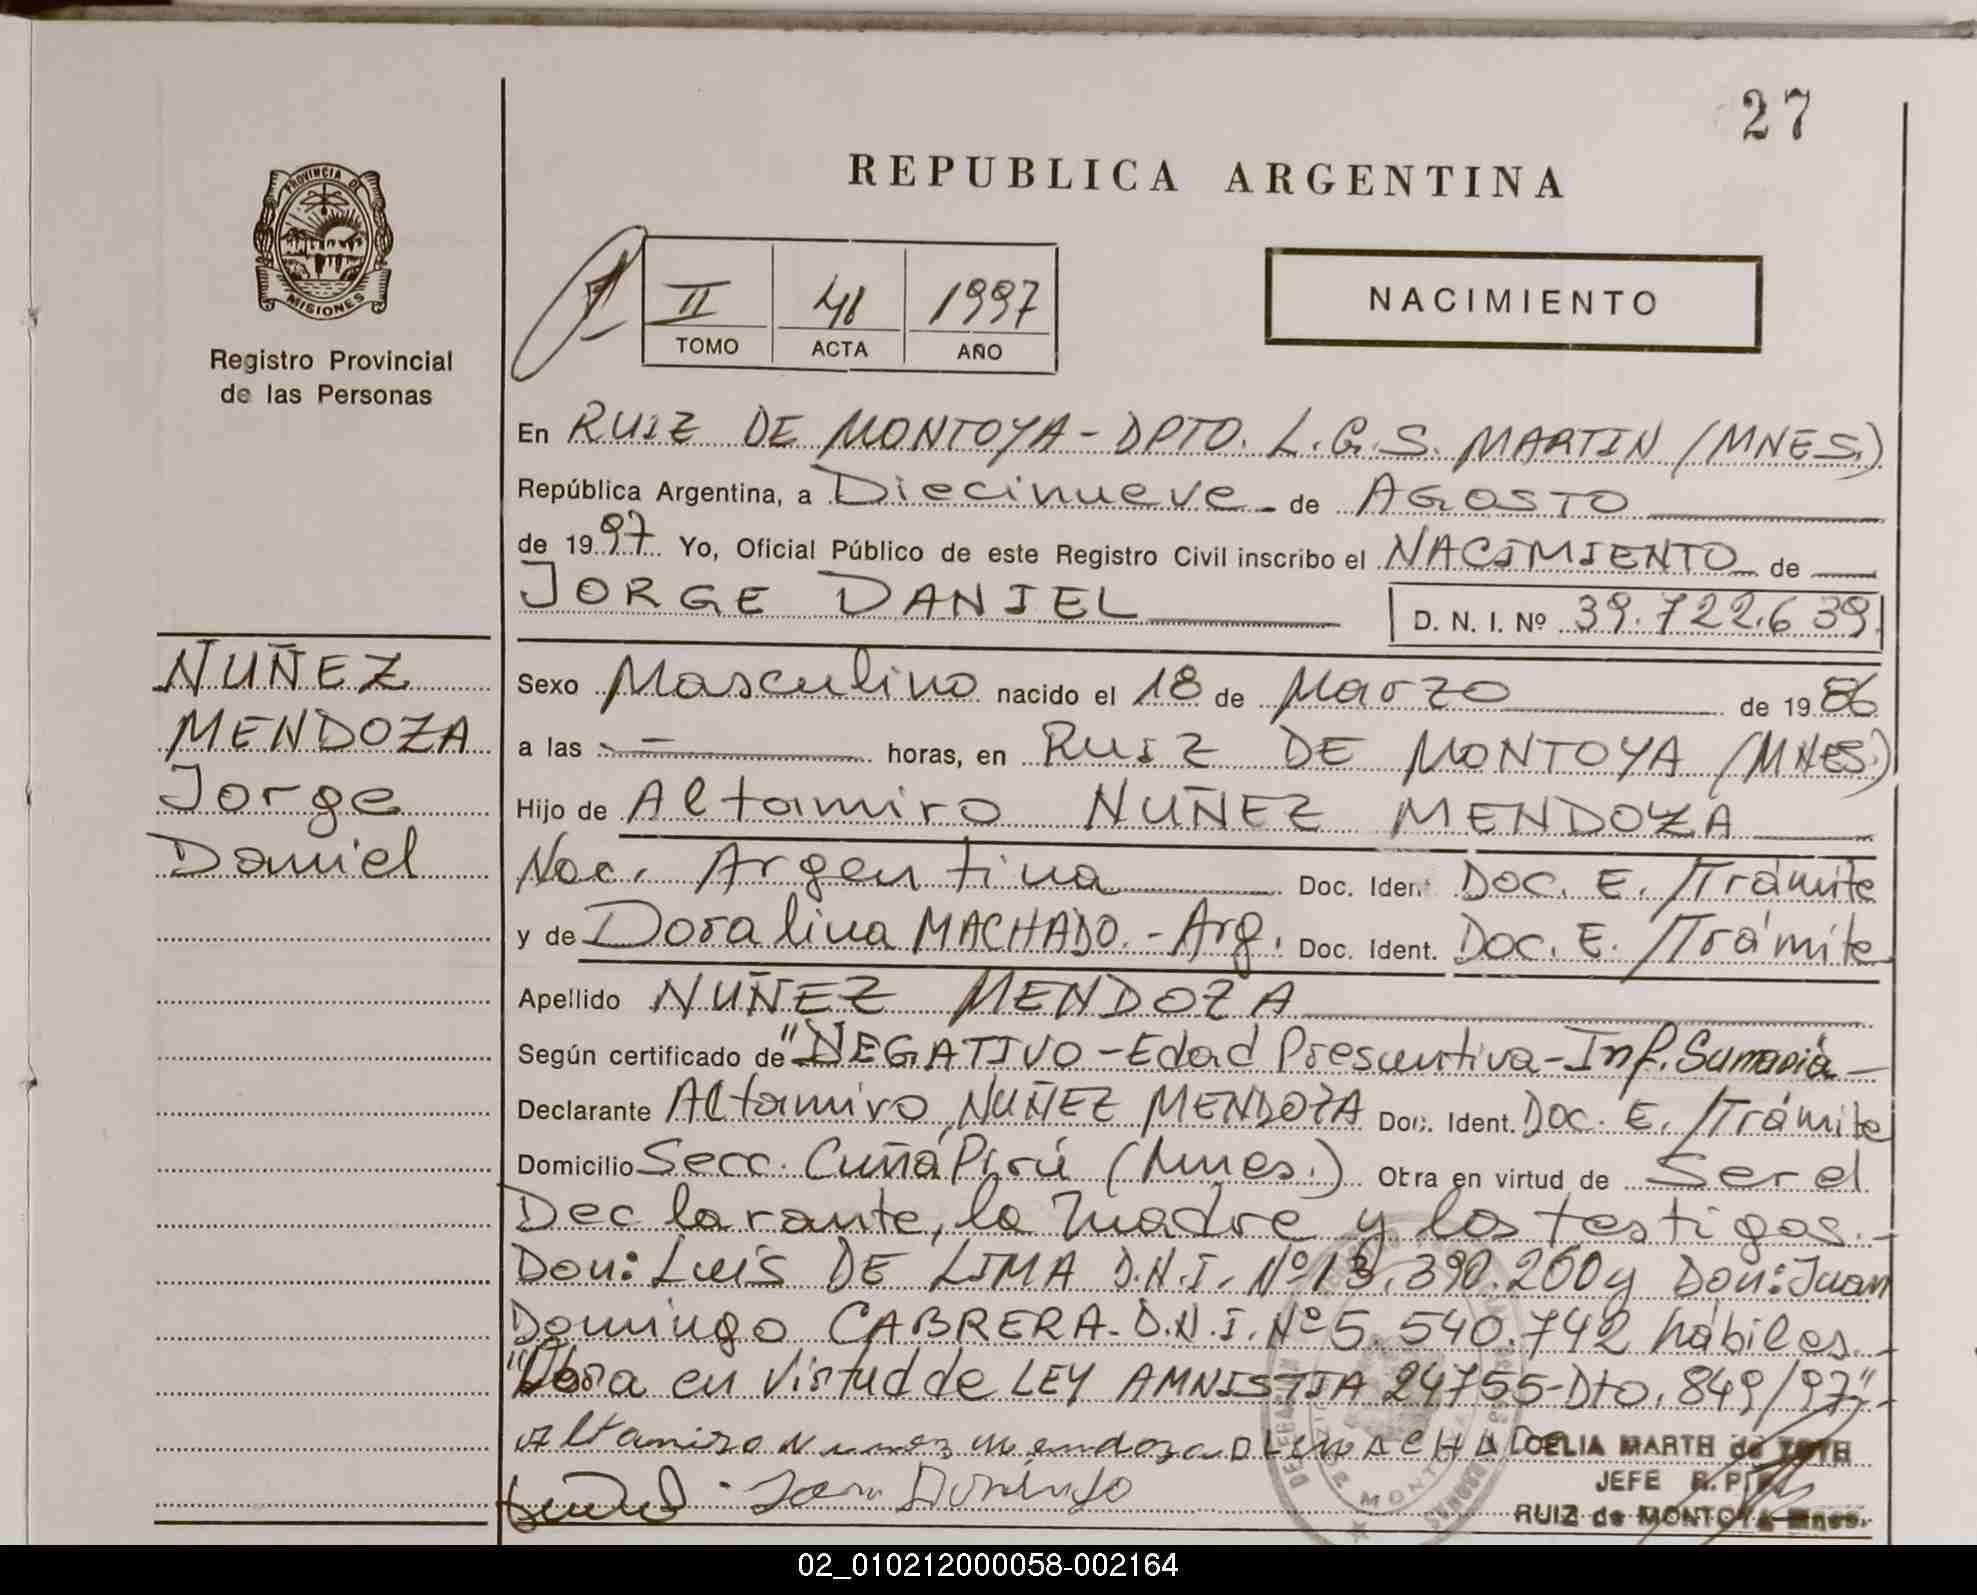 27
REPUBLICA ARGENTINA
PROVINCIA DE
MISIONES
Registro Provincial
de las Personas
II 41 1997
TOMO ACTA AÑO
NACIMIENTO
En RUIZ DE MONTOYA - DPTO. L.G.S. MARTIN (MNES.)
República Argentina, a Diecinueve de AGOSTO
de 1997 Yo, Oficial Público de este Registro Civil inscribo el NACIMIENTO de
JORGE DANIEL
D. N. I. Nº 39.722.639
NUÑEZ
MENDOZA
Jorge
Daniel
Sexo Masculino nacido el 18 de Marzo de 1986
a las - horas, en RUIZ DE MONTOYA (MNES.)
Hijo de Altamiro NUÑEZ MENDOZA
Nac. Argentina Doc. Ident Doc. E. /Trámite
y de Doralina MACHADO. - Arg. Doc. Ident. Doc. E. /Trámite
Apellido NUÑEZ MENDOZA
Según certificado de "NEGATIVO - Edad Presuntiva - Inf. Sumaria -
Declarante Altamiro NUÑEZ MENDOZA Doc. Ident. Doc. E. /Trámite
Domicilio Secc. CuñáPirú (Mnes.) Obra en virtud de Ser el
Declarante, la Madre y los testigos.-
Don: Luis DE LIMA D.N.I. Nº 13.390.260 y Don: Juan
Domingo CABRERA - D.N.I. Nº 5.540.742 hábiles.-
"Obra en Virtud de LEY AMNISTIA 24755 - Dto. 849/97".-
Altamiro Nunez Mendoza
CELIA MARTH de TOTH
JEFE R.P.
RUIZ de MONTOYA Mnes.
02_010212000058-002164